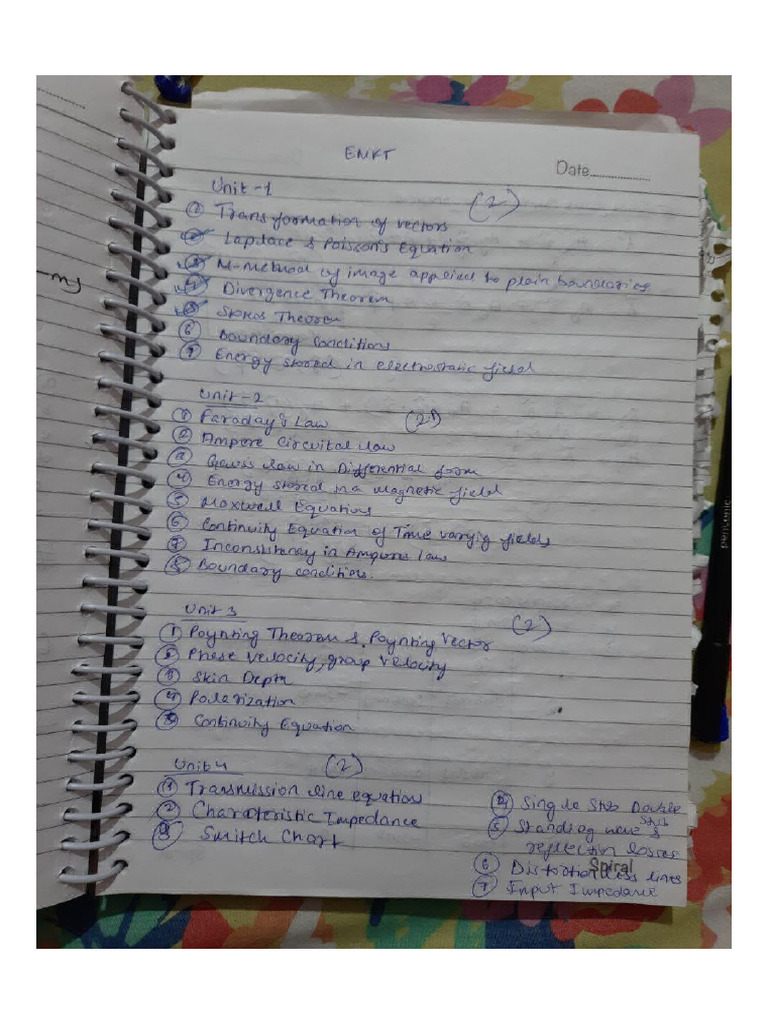 EMFT
Date
Unit-1
(2)
① Transformation of vectors
② Laplace & Poisson's Equation
③ M-method of image applied to plain boundaries
④ Divergence Theorem
⑤ Stokes Theorem
⑥ Boundary Conditions
⑦ Energy stored in electrostatic field
Unit-2
① Faraday's Law
② Ampere Circuital law
③ Gauss law in Differential form
④ Energy stored in a magnetic field
⑤ Maxwell Equations
⑥ Continuity Equation of Time varyig fields
⑦ Inconsistency in Ampere law
⑧ Boundary conditions.
Unit 3
(2)
① Poynting Theorem & Poynting Vector
② Phase Velocity, group velocity
③ Skin Depth
④ Polarization
⑤ Continuity Equation
Unit 4
(2)
① Transmission line equation
② Characteristic Impedance
③ Smitch Chart
④ Single Stub Double Stub
⑤ Standing wave &
reflection losses
⑥ Distortion less lines
⑦ Input Impedance
Spiral